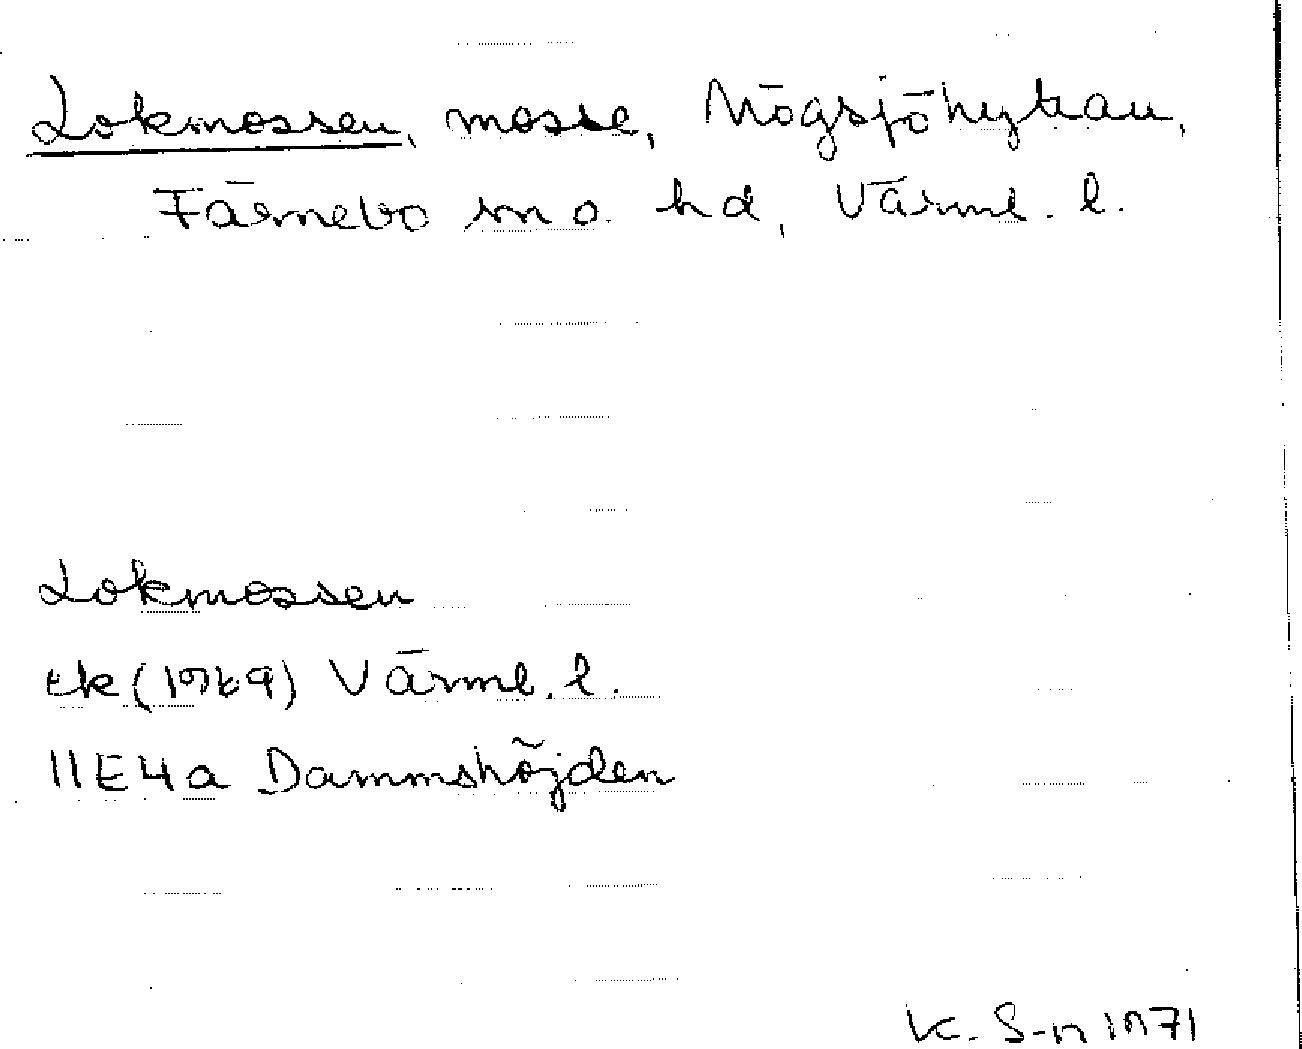 Lokmossen, mosse, Högsjöhyttan,
Färnebo sn o. hd, Värml. l.
Lokmossen
ek (1969) Värml. l.
11E4a Dammshöjden
K. S-n 1971